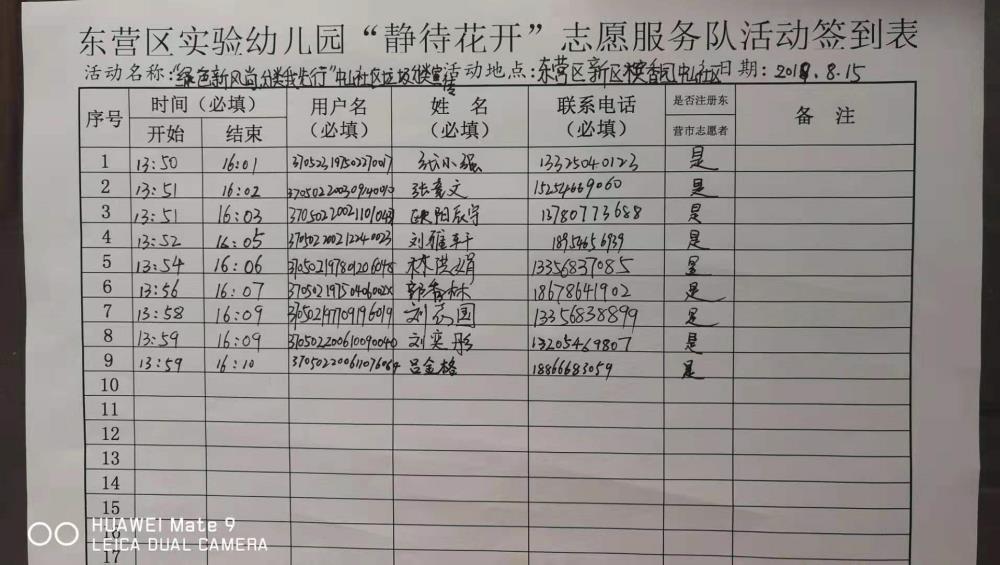 东营区实验幼儿园“静待花开”志愿服务队活动签到表
活动名称:“绿色新风尚分类我先行”中山社区垃圾分类宣传 活动地点:东营区新区檀香园中山社区 日期:2018.8.15
序号 时间(必填) 用户名(必填) 姓名(必填) 联系电话(必填) 是否注册东营市志愿者 备注
开始 结束
1 13:50 16:01 370523197502270017 张小强 13325040123 是
2 13:51 16:02 张 文 15254669060 是
3 13:51 16:03 欧阳辰宇 13780773688 是
4 13:52 16:05 370502200212240023 刘雅轩 18954656939 是
5 13:54 16:06 370502197801206048 林洪娟 13356837085 是
6 13:56 16:07 37050219750406002X 郭香林 18678641902 是
7 13:58 16:09 370502197709196019 刘 国 13356838899 是
8 13:59 16:09 370502200610090040 刘奕彤 13205469807 是
9 13:59 16:10 370502200611076064 吕金格 18866683059 是
10
11
12
13
14
15
16
17
HUAWEI Mate 9
LEICA DUAL CAMERA